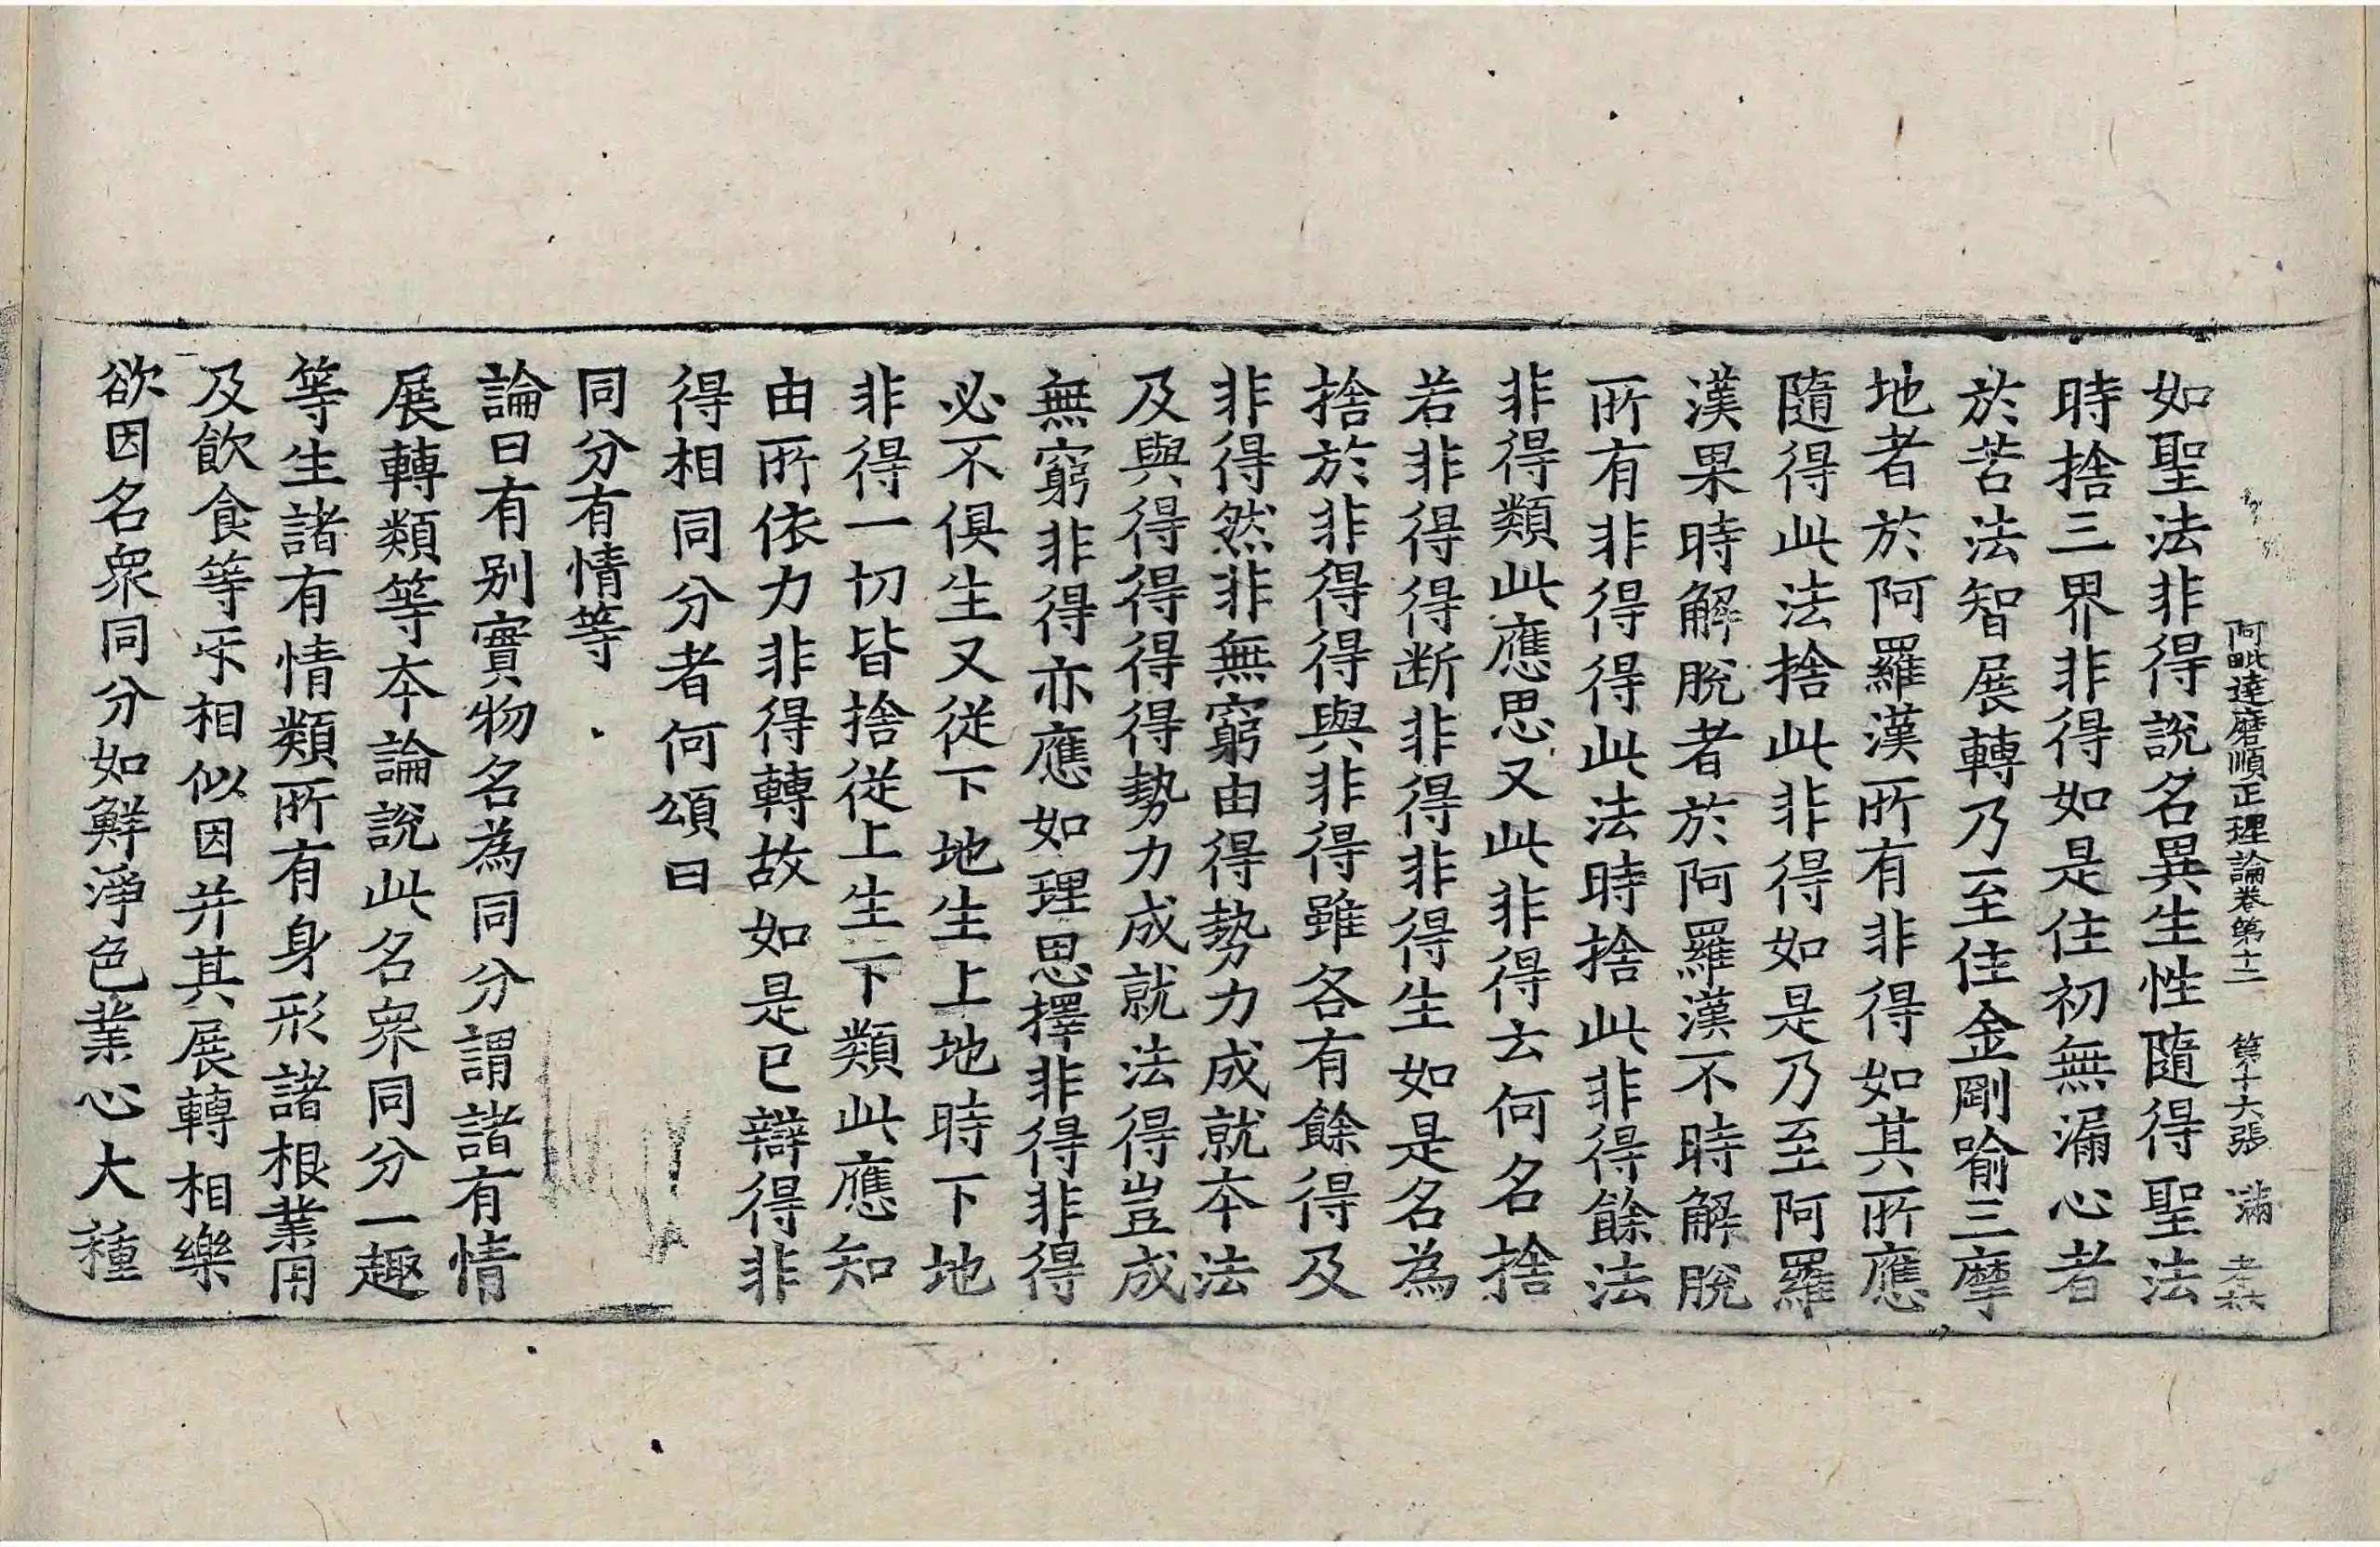 阿毗達磨順正理論卷第十二　第十六張　滿
如聖法非得說名異生性隨得聖法
時捨三界非得如是住初無漏心者
於苦法智展轉乃至住金剛喻三摩
地者於阿羅漢所有非得如其所應
隨得此法捨此非得如是乃至阿羅
漢果時解脫者於阿羅漢不時解脫
所有非得得此法時捨此非得餘法
非得類此應思又此非得云何名捨
若非得得斷非得非得生如是名為
捨於非得得與非得雖各有餘得及
非得然非無窮由得勢力成就本法
及與得得得得勢力成就法得豈成
無窮非得亦應如理思擇非得非得
必不俱生又從下地生上地時下地
非得一切皆捨從上生下類此應知
由所依力非得轉故如是已辯得非
得相同分者何頌曰
同分有情等
論曰有別實物名為同分謂諸有情
展轉類等本論說此名眾同分一趣
等生諸有情類所有身形諸根業用
及飲食等乑相似因并其展轉相樂
欲因名眾同分如鮮淨色業心大種